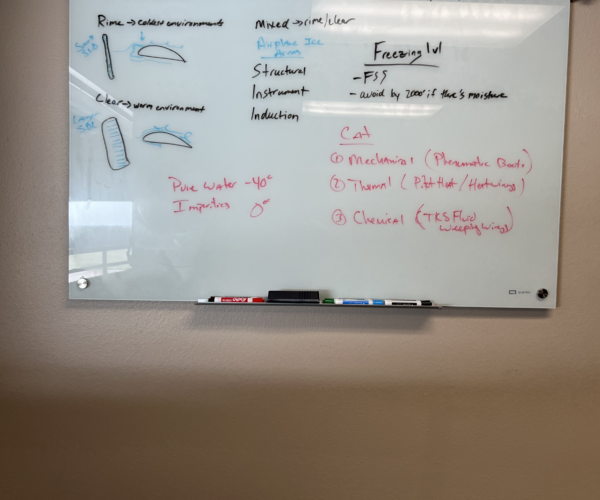 Rime → coldest environments
Clear → warm environment
Mixed → rime/clear
Airplane Ice
Structural
Instrument
Induction
Freezing lvl
- avoid by 2000' if there's moisture
Pure water -40°
Impurities 0°
① Mechanical (Pneumatic Boots)
② Thermal (Pitot Heat / Heatwings)
③ Chemical (TKS Fluid
weeping wings)
EXPO